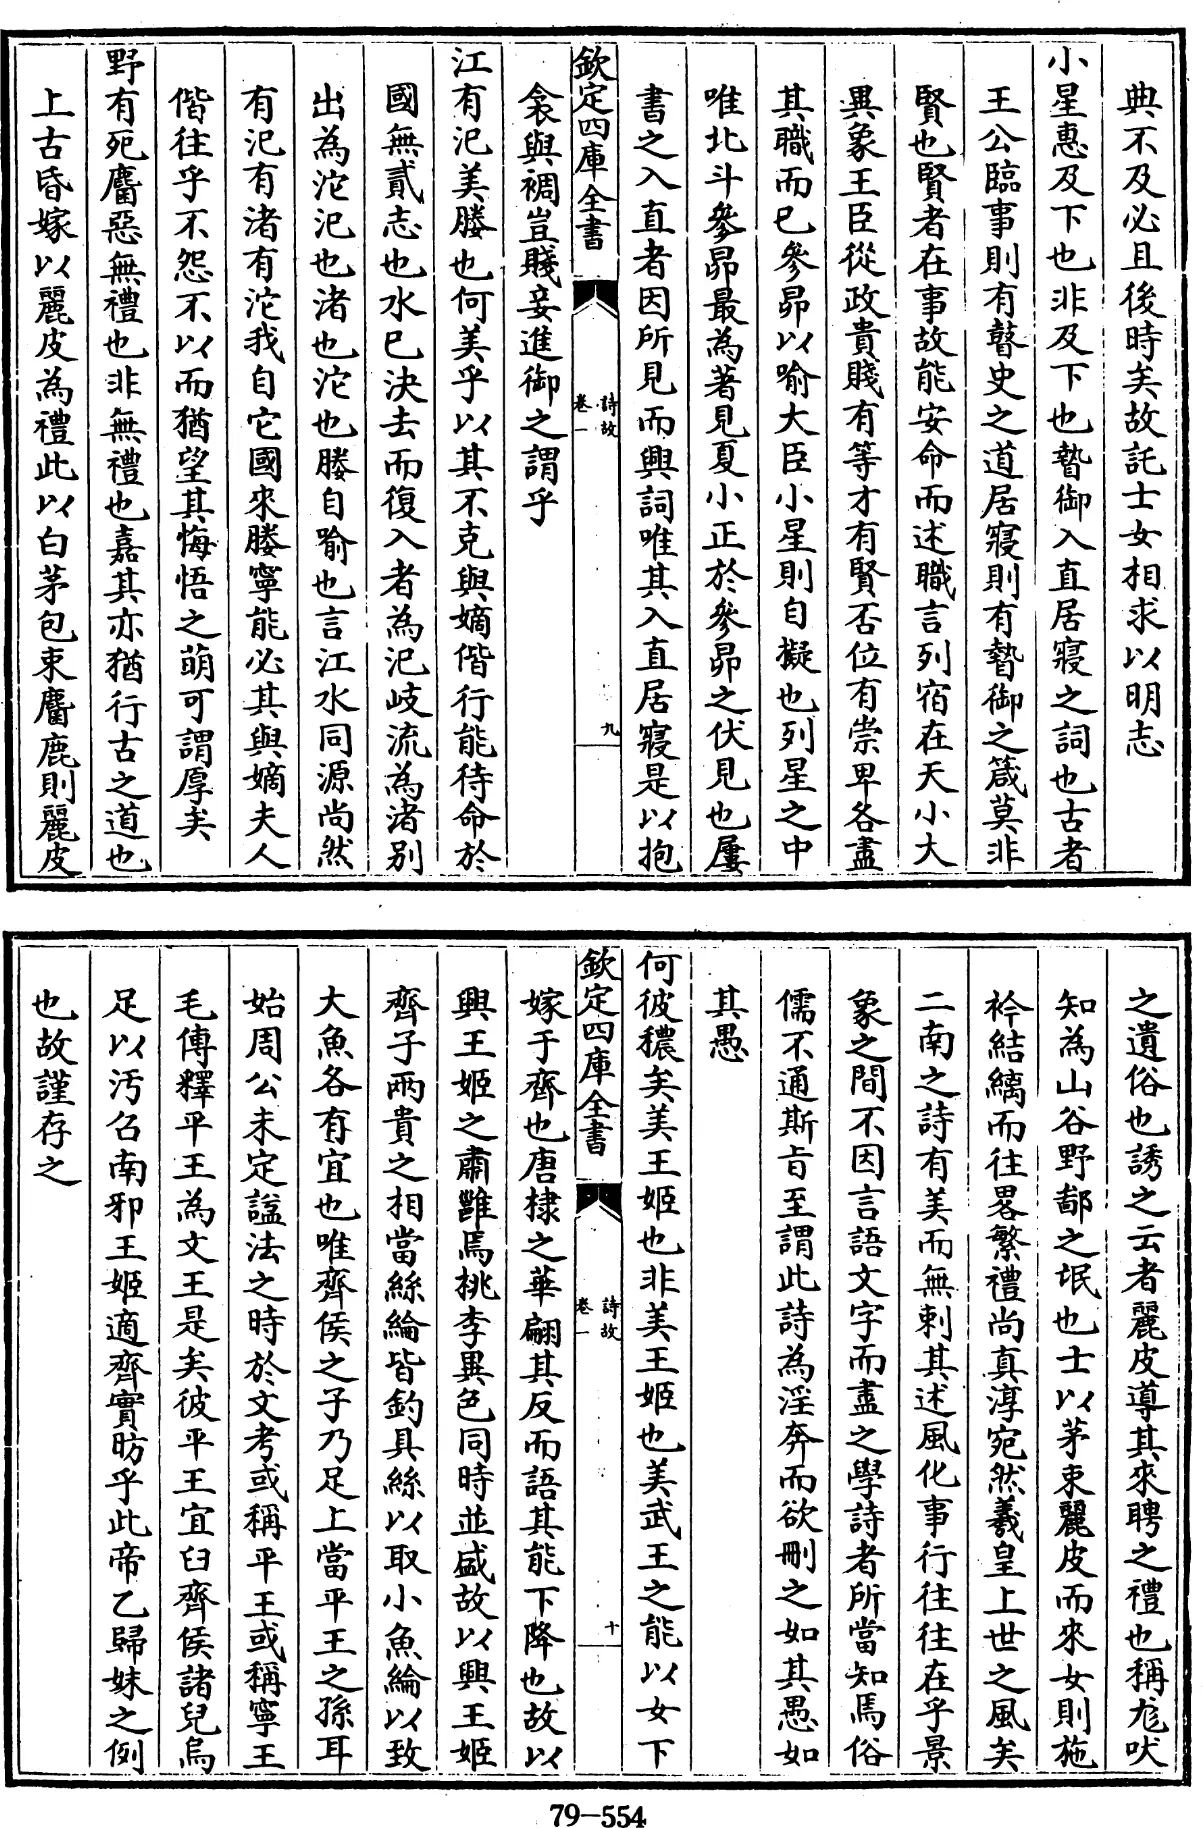 典不及必且後時矣故託士女相求以明志
小星惠及下也非及下也暬御入直居寢之詞也古者
王公臨事則有瞽史之道居寢則有暬御之箴莫非
賢也賢者在事故能安命而述職言列宿在天小大
異象王臣從政貴賤有等才有賢否位有崇卑各盡
其職而已參昴以喻大臣小星則自擬也列星之中
唯北斗參昴最為著見夏小正於參昴之伏見也屢
書之入直者因所見而興詞唯其入直居寢是以抱
欽定四庫全書
詩故
卷一
九
衾與裯豈賤妾進御之謂乎
江有汜美媵也何美乎以其不克與嫡偕行能待命於
國無貳志也水已決去而復入者為汜岐流為渚別
出為沱汜也渚也沱也媵自喻也言江水同源尚然
有汜有渚有沱我自它國來媵寧能必其與嫡夫人
偕往乎不怨不以而猶望其悔悟之萌可謂厚矣
野有死麕惡無禮也非無禮也嘉其亦猶行古之道也
上古昏嫁以麗皮為禮此以白茅包束麕鹿則麗皮
之遺俗也誘之云者麗皮導其來聘之禮也稱尨吠
知為山谷野鄙之氓也士以茅束麗皮而來女則施
衿結縭而往畧繁禮尚真淳宛然羲皇上世之風矣
二南之詩有美而無刺其述風化事行往往在乎景
象之間不因言語文字而盡之學詩者所當知焉俗
儒不通斯㫖至謂此詩為淫奔而欲刪之如其愚如
其愚
何彼穠矣美王姬也非美王姬也美武王之能以女下
欽定四庫全書
詩故
卷一
十
嫁于齊也唐棣之華翩其反而語其能下降也故以
興王姬之肅雝焉桃李異色同時並盛故以興王姬
齊子兩貴之相當絲綸皆釣具絲以取小魚綸以致
大魚各有宜也唯齊侯之子乃足上當平王之孫耳
始周公未定諡法之時於文考或稱平王或稱寧王
毛傳釋平王為文王是矣彼平王宜臼齊侯諸兒烏
足以汚召南邪王姬適齊實昉乎此帝乙歸妹之例
也故謹存之
79-554